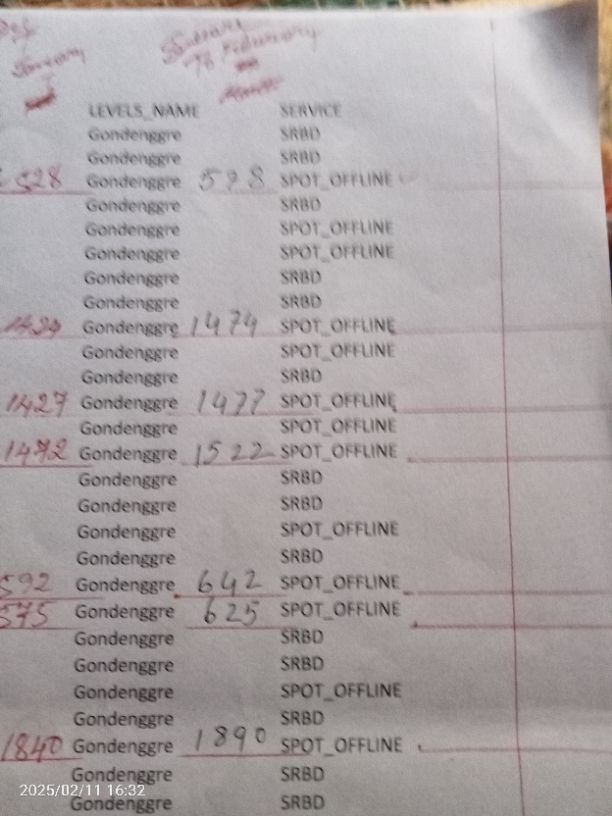 February
LEVELS_NAME SERVICE
Gondenggre SRBD
Gondenggre SRBD
528 Gondenggre 578 SPOT_OFFLINE
Gondenggre SRBD
Gondenggre SPOT_OFFLINE
Gondenggre SPOT_OFFLINE
Gondenggre SRBD
Gondenggre SRBD
Gondenggre 1474 SPOT_OFFLINE
Gondenggre SPOT_OFFLINE
Gondenggre SRBD
1427 Gondenggre 1477 SPOT_OFFLINE
Gondenggre SPOT_OFFLINE
1472 Gondenggre 1522 SPOT_OFFLINE
Gondenggre SRBD
Gondenggre SRBD
Gondenggre SPOT_OFFLINE
Gondenggre SRBD
592 Gondenggre 642 SPOT_OFFLINE
575 Gondenggre 625 SPOT_OFFLINE
Gondenggre SRBD
Gondenggre SRBD
Gondenggre SPOT_OFFLINE
Gondenggre SRBD
1840 Gondenggre 1890 SPOT_OFFLINE
Gondenggre SRBD
Gondenggre SRBD
2025/02/11 16:32